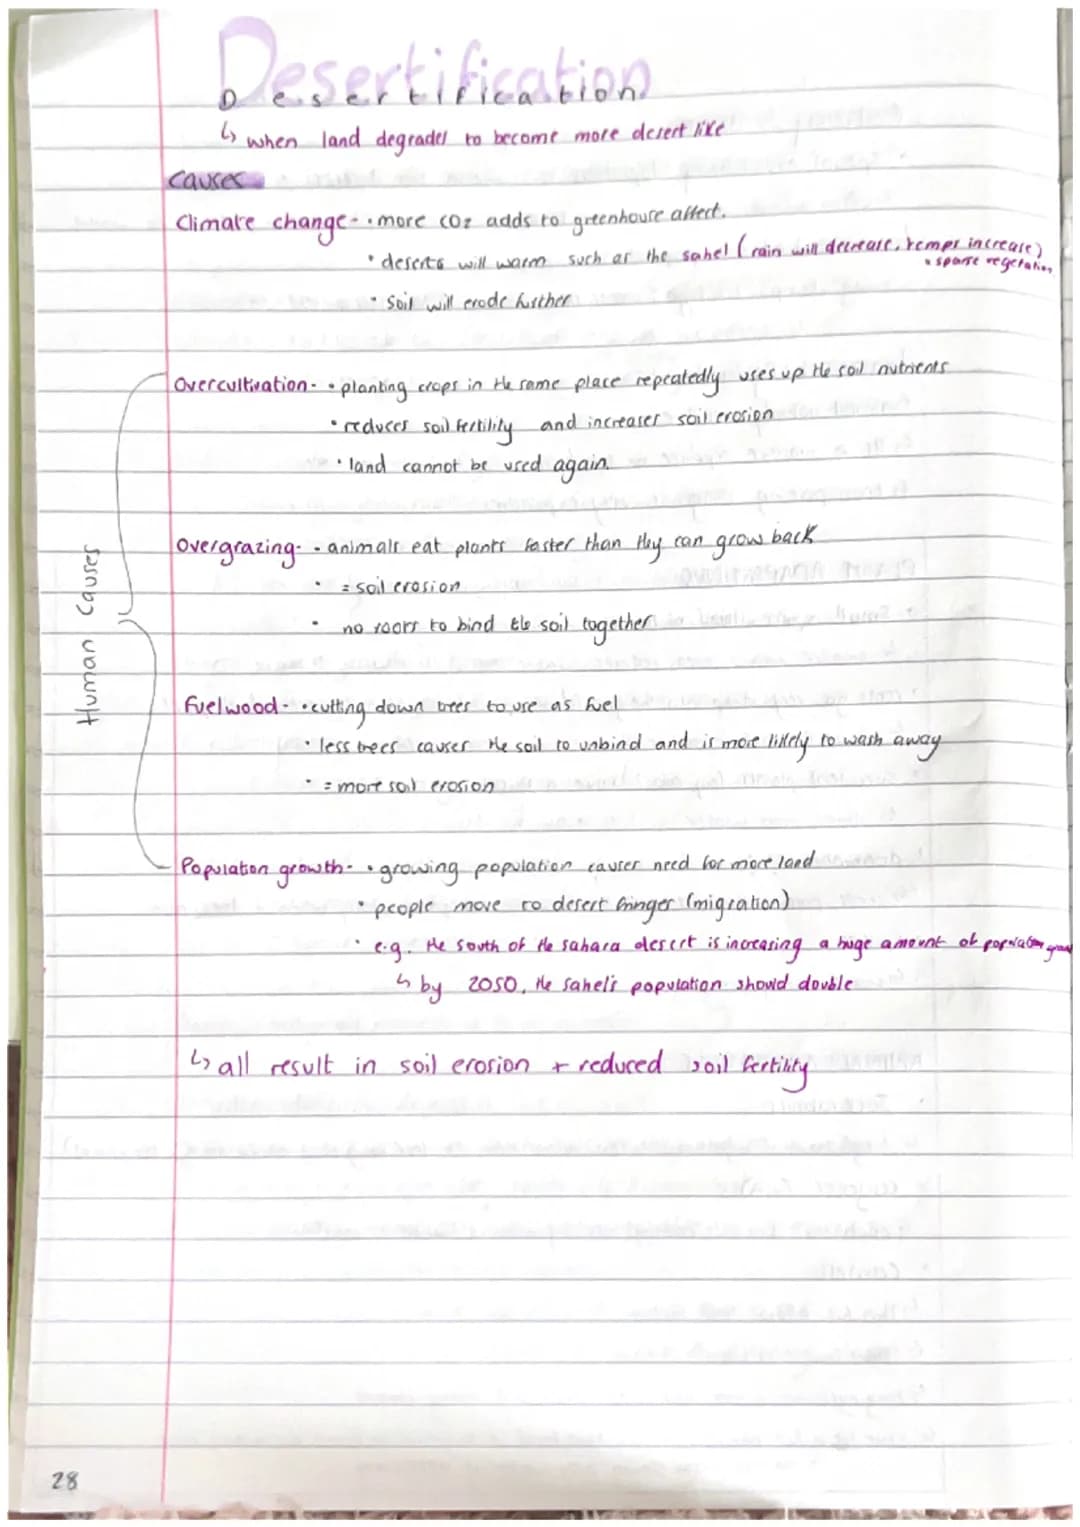 Desertification
Desertification
↳ when land degrades to become more desert like
Causes
Climate change - • more CO2 adds to greenhouse affect.
• deserts will warm such as the sahel (rain will decrease, temps increase)
• sparse vegetation
• Soil will erode further
Overcultivation - • planting crops in the same place repeatedly uses up the soil nutrients
• reduces soil fertility and increases soil erosion
• land cannot be used again.
Overgrazing - • animals eat plants faster than they can grow back
• = soil erosion
• no roots to bind the soil together
Human Causes
Fuelwood - • cutting down trees to use as fuel
• less trees causes the soil to unbind and is more likely to wash away
• = more soil erosion
Population growth - • growing population causes need for more land
• people move to desert fringes (migration)
• e.g. the south of the sahara desert is increasing a huge amount of population
↳ by 2050, the sahel's population should double
↳ all result in soil erosion + reduced soil fertility
28